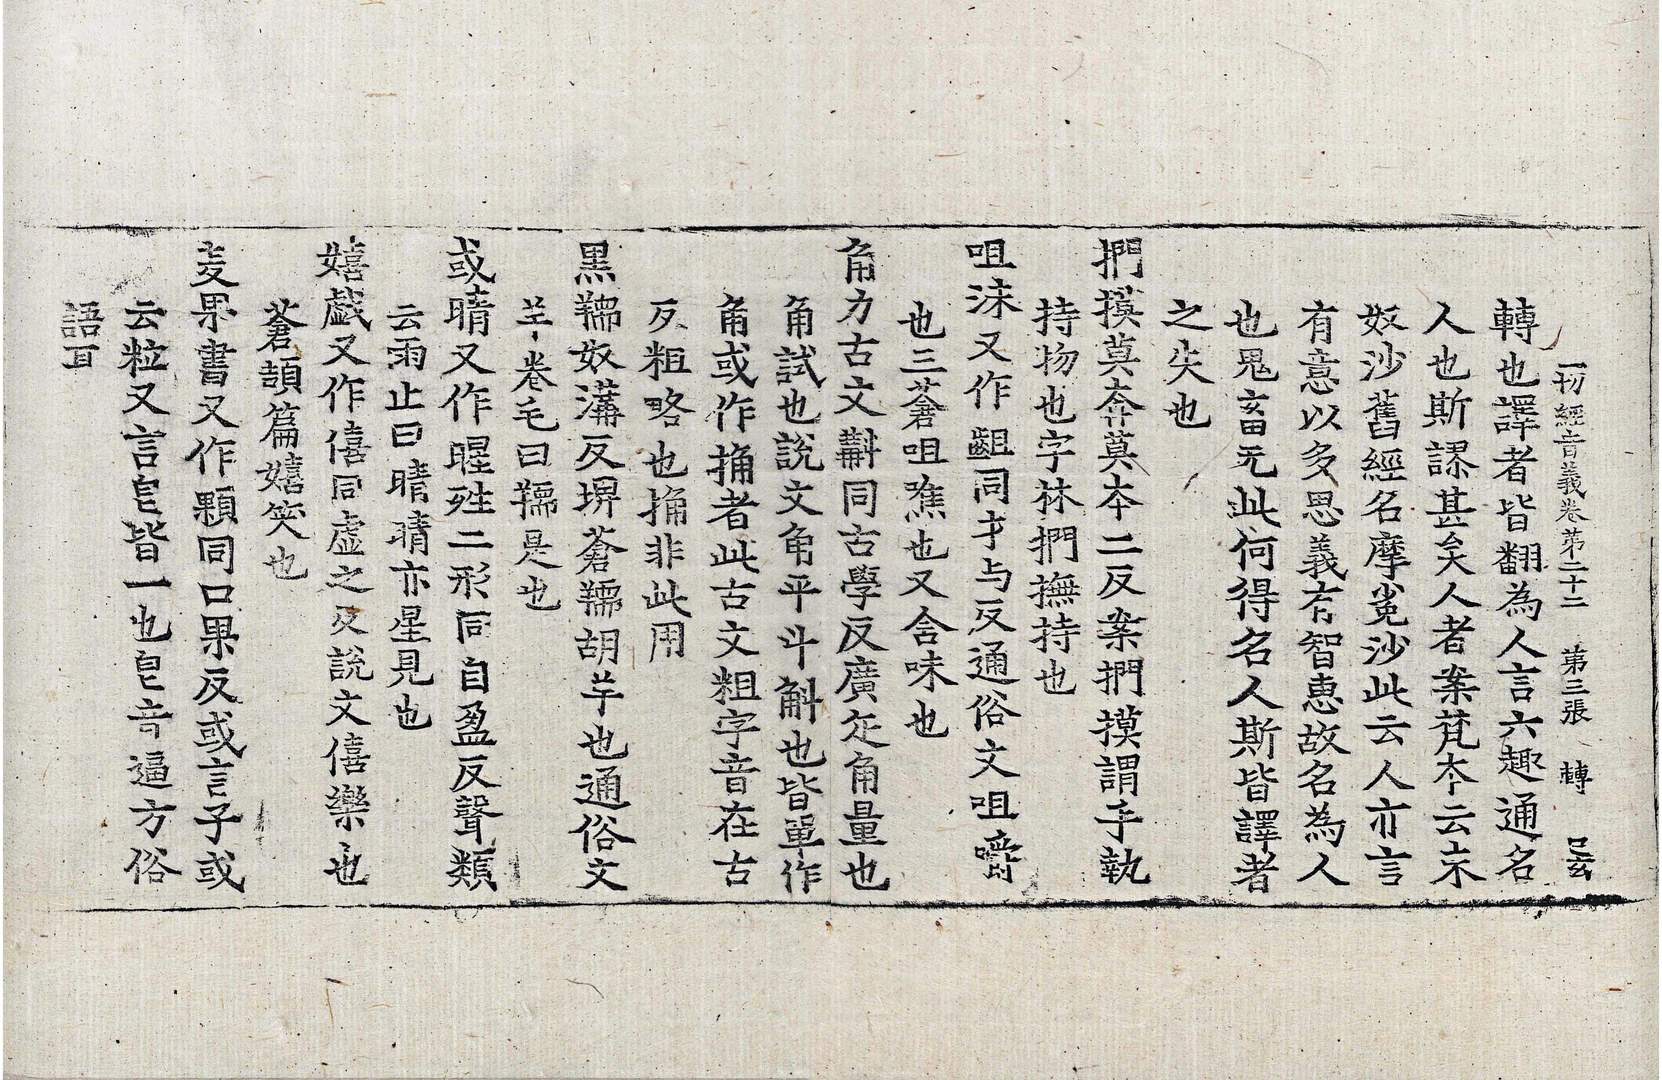 一切經音義卷苐二十二 苐三張 轉
轉也譯者皆翻為人言六趣通名
人也斯謬甚矣人者案梵夲云末
奴沙舊經名摩㝹沙此云人亦言
有意以多思義有智惠故名為人
也鬼畜无此何得名人斯皆譯者
之失也
捫摸莫奔莫夲二反案捫摸謂手執
持物也字林捫撫持也
咀沬又作齟同才与反通俗文咀嚼
也三蒼咀噍也又含味也
角力古文斠同古學反廣疋角量也
角試也說文角平斗斛也皆單作
角或作捔者此古文粗字音在古
反粗略也捔非此用
黒羺奴溝反埤蒼羺胡羊也通俗文
羊卷毛曰羺是也
或晴又作暒殅二形同自盈反聲類
云雨止曰晴晴亦星見也
嬉戯又作僖同虚之反說文僖樂也
蒼頡篇嬉笑也
麦果書又作顆同口果反或言子或
云粒又言皀皆一也皀音逼方俗
語耳